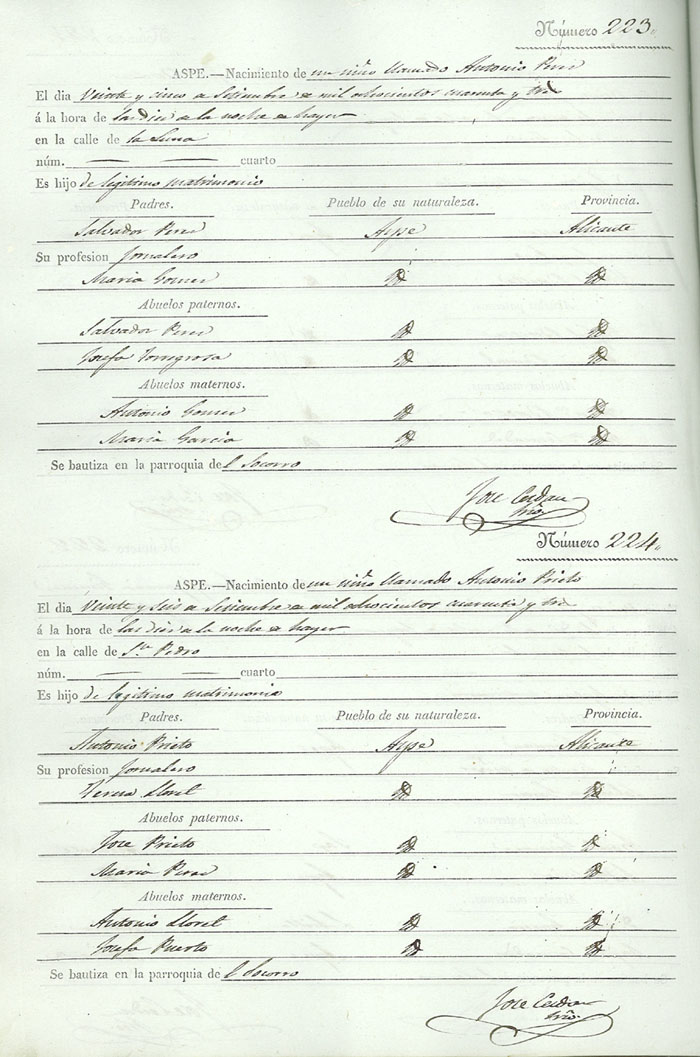 Número 223.
ASPE.—Nacimiento de un niño llamado Antonio Perez
El dia veinte y cinco de Setiembre de mil ochocientos cuarenta y tres
á la hora de las diez de la noche de hayer
en la calle de la Luna
núm. — — cuarto
Es hijo de legitimo matrimonio
Padres. Pueblo de su naturaleza. Provincia.
Salvador Perez Aspe Alicante
Su profesion Jornalero
Maria Gomez
Abuelos paternos.
Salvador Perez
Josefa Torregrosa
Abuelos maternos.
Antonio Gomez
Maria Garcia
Se bautiza en la parroquia del Socorro
Jose Cerdan
Número 224.
ASPE.—Nacimiento de un niño llamado Antonio Prieto
El dia veinte y seis de Setiembre de mil ochocientos cuarenta y tres
á la hora de las diez de la noche de hayer
en la calle de Sn. Pedro
núm. — — cuarto
Es hijo de legitimo matrimonio
Padres. Pueblo de su naturaleza. Provincia.
Antonio Prieto Aspe Alicante
Su profesion Jornalero
Teresa Lloret
Abuelos paternos.
Jose Prieto
Maria Perez
Abuelos maternos.
Antonio Lloret
Josefa Puerto
Se bautiza en la parroquia del Socorro
Jose Cerdan